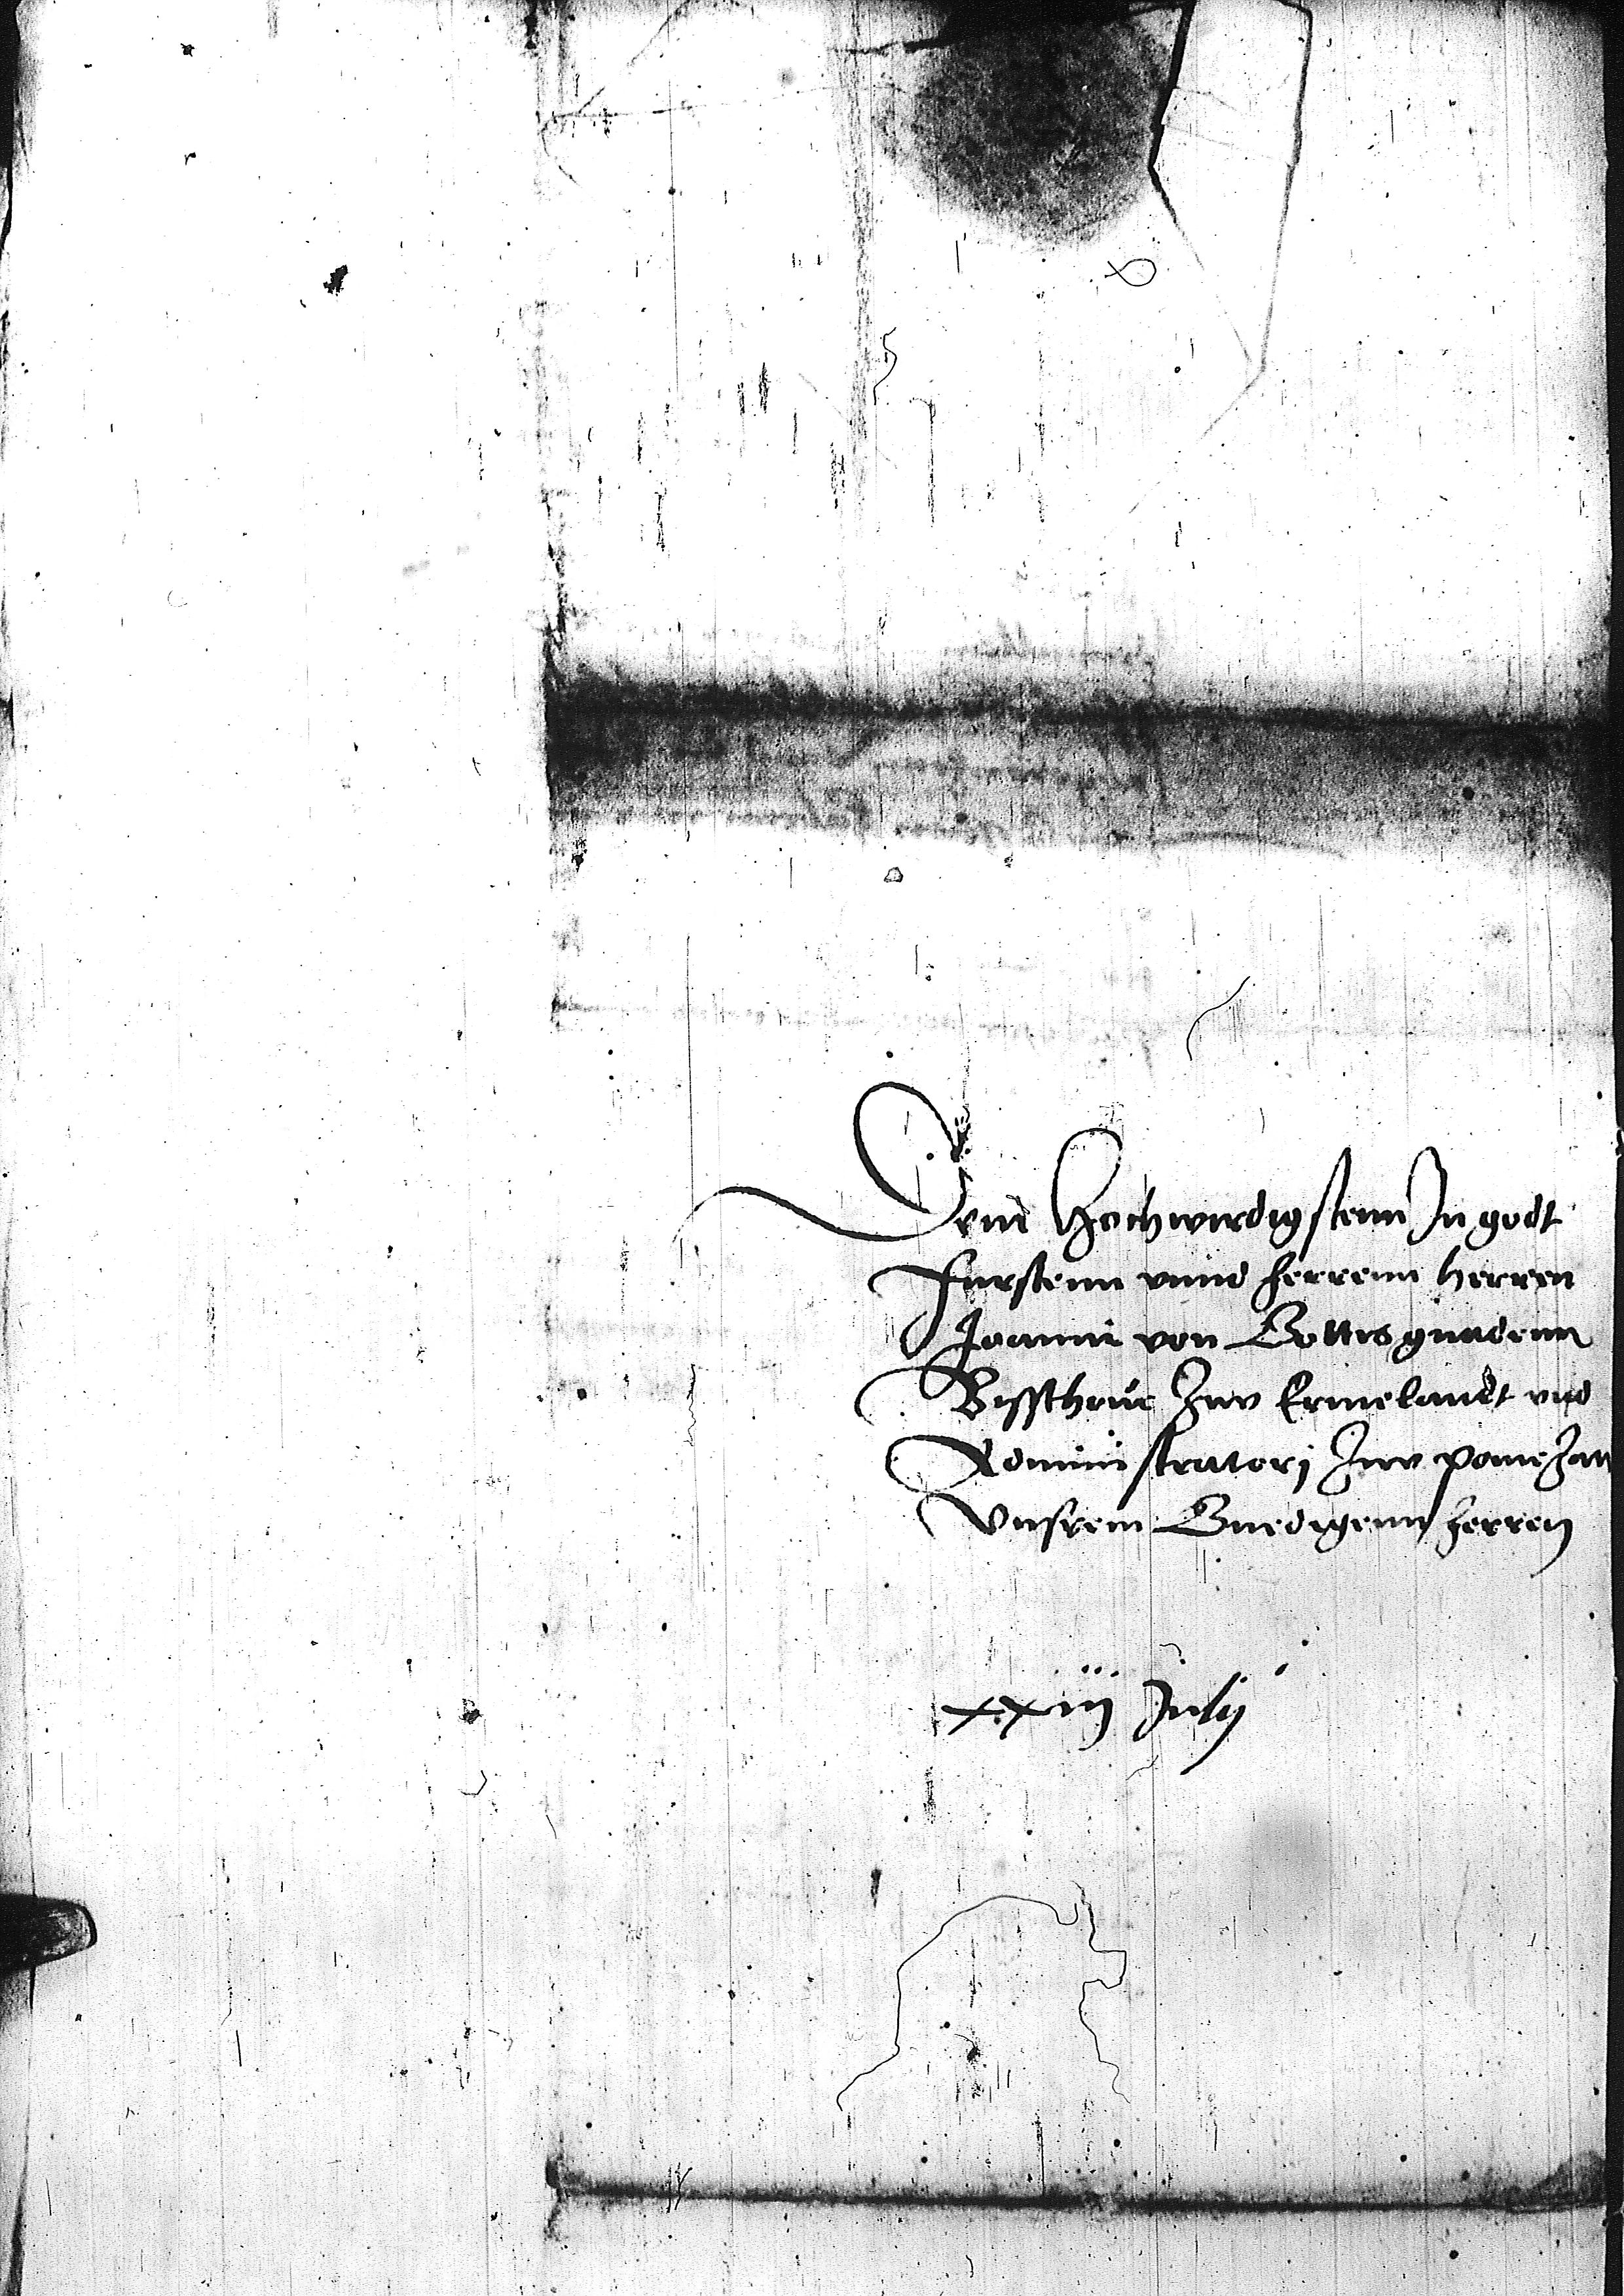 Dem Hochwirdigstenn In godt
Furstenn vnnd herrenn herren
Joanni von Gottes gnadenn
Bisschoue Zuw Ermelandt vnd
Administratorj Zuw pomezan
Vnsrem Gnedigenn herren
xxiij Julij